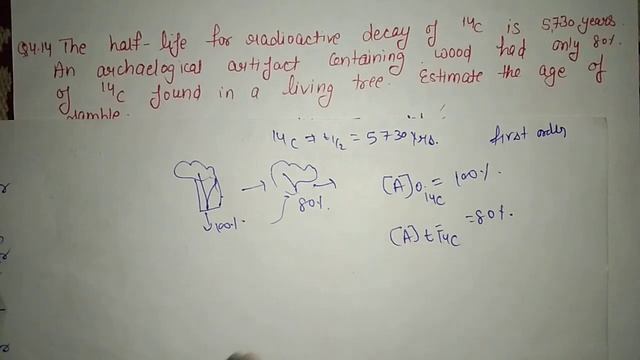 Q4.14 The half-life for radioactive decay of 14C is 5,730 years.
An archaelogical artifact containing wood had only 80%
of 14C found in a living tree. Estimate the age of
sample.
14C → t1/2 = 5730 yrs. first order
[A]0 = 100%
14C
100%
80%
[A]t = 80%
14C